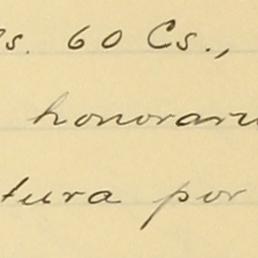 60 Cs.,
honorar
tura por